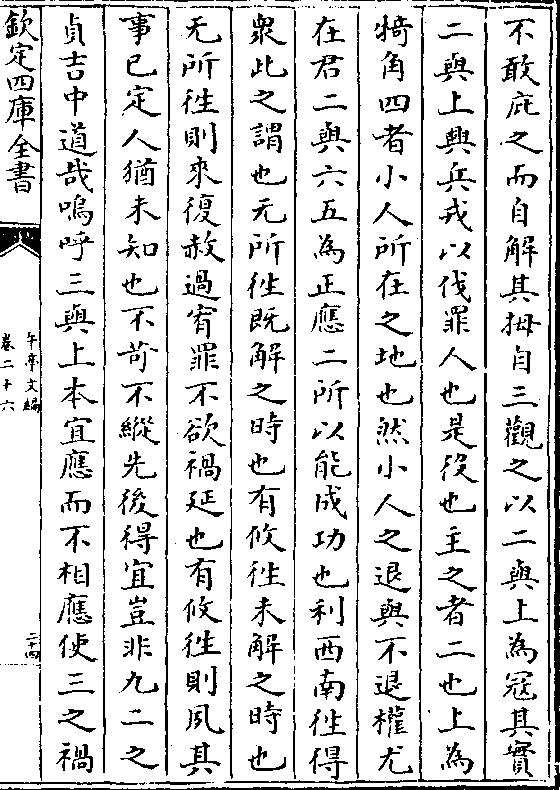 不敢庇之而自解其拇自三觀之以二與上為寇其實
二與上興兵戎以伐罪人也是役也主之者二也上為
犄角四者小人所在之地也然小人之退與不退權尤
在君二與六五為正應二所以能成功也利西南徃得
衆此之謂也无所徃既解之時也有攸徃未解之時也
无所徃則來復赦過宥罪不欲禍延也有攸徃則夙其
事已定人猶未知也不苛不縱先後得宜豈非九二之
貞吉中道哉嗚呼三與上本宜應而不相應使三之禍
欽定四庫全書
午亭文編
卷二十六
二十四